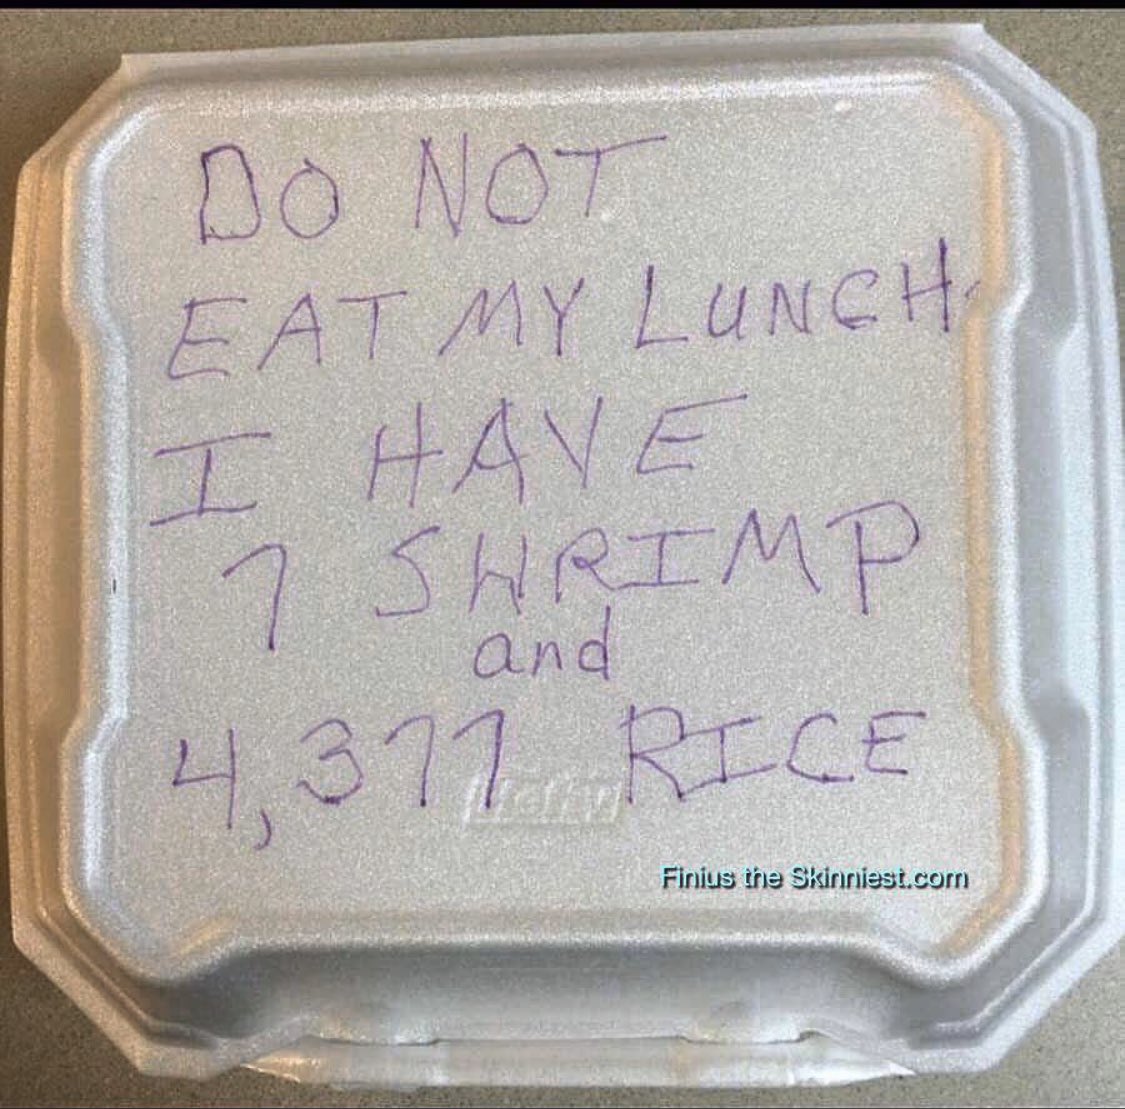 DO NOT
EAT MY LUNCH.
I HAVE
7 SHRIMP
and
4,377 RICE
Finius the Skinniest.com